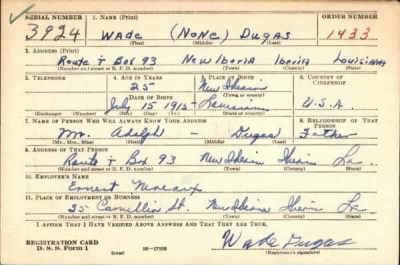 SERIAL NUMBER 1. NAME (Print) ORDER NUMBER
3924 WADE (NONE) DUGAS 1433
(First) (Middle) (Last)
2. ADDRESS (Print)
Route 1 Box 93 New Iberia Iberia Louisiana
(Number and street or R. F. D. number) (Town) (County) (State)
3. TELEPHONE 4. AGE IN YEARS 5. PLACE OF BIRTH 6. COUNTRY OF CITIZENSHIP
25 New Iberia
(Town or county)
DATE OF BIRTH
July 15 1915 Louisiana U.S.A.
(Exchange) (Number) (Mo.) (Day) (Yr.) (State or country)
7. NAME OF PERSON WHO WILL ALWAYS KNOW YOUR ADDRESS 8. RELATIONSHIP OF THAT PERSON
Mr. Adolph - Dugas Father
(Mr., Mrs., Miss) (First) (Middle) (Last)
9. ADDRESS OF THAT PERSON
Route 1 Box 93 New Iberia Iberia La.
(Number and street or R. F. D. number) (Town) (County) (State)
10. EMPLOYER'S NAME
Ernest
11. PLACE OF EMPLOYMENT OR BUSINESS
St. New Iberia Iberia La
(Number and street or R. F. D. number) (Town) (County) (State)
I AFFIRM THAT I HAVE VERIFIED ABOVE ANSWERS AND THAT THEY ARE TRUE.
Wade Dugas
REGISTRATION CARD
D. S. S. Form 1 (over) (Registrant's signature)